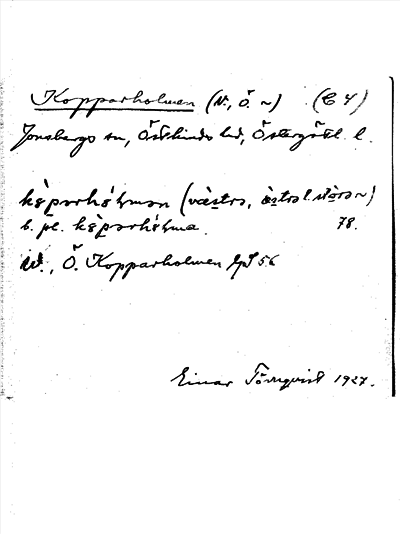 Kopparholmen (V., Ö. ~) (C 4)
Jonsbergs sn, Östkinds hd, Östergötl. l.
kòparhólman (vàstra, òstra l. stòra ~)
b. pl. kòparhólma. 78.
V., Ö. Kopparholmen 56
Einar Törnqvist 1927.